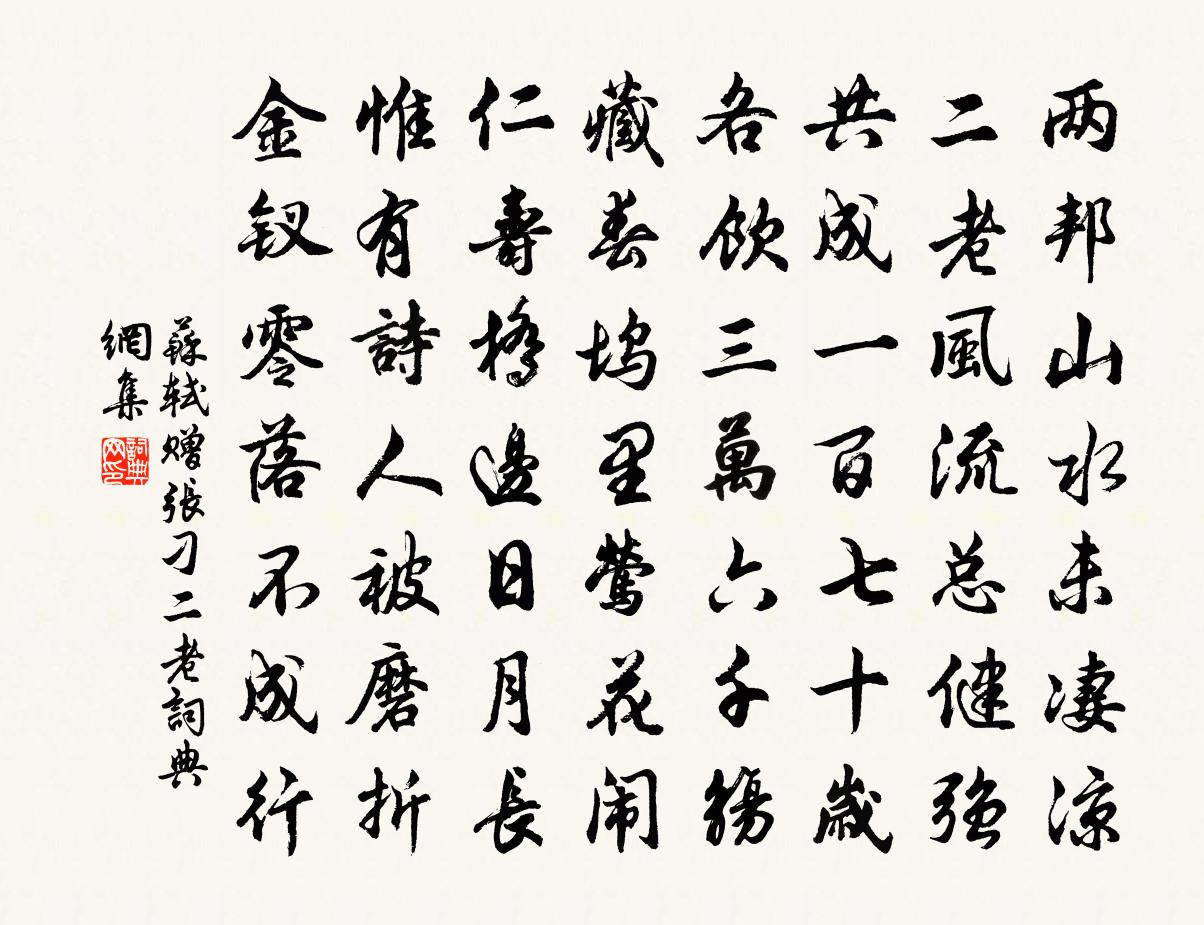 两邦山水未凄涼
二老風流总健强
共成一百七十歲
各飲三萬六千觴
藏春塢里鶯花闹
仁壽橋邊日月長
惟有詩人被磨折
金钗零落不成行
蘇軾赠張刁二老詞典
網集
詞典网印